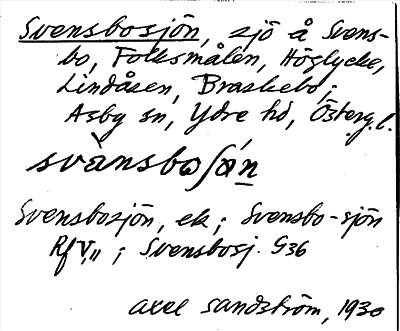 Svensbosjön, sjö å Svens-
bo, Folksmålen, Höglycke,
Lindåsen, Braskebo;
Asby sn, Ydre hd, Österg.l.
svànsboʃǿn̲
Svensbosjön, ek; Svensbo-sjön
Rf V,11; Svensbosj. G36
Axel Sandström, 1930